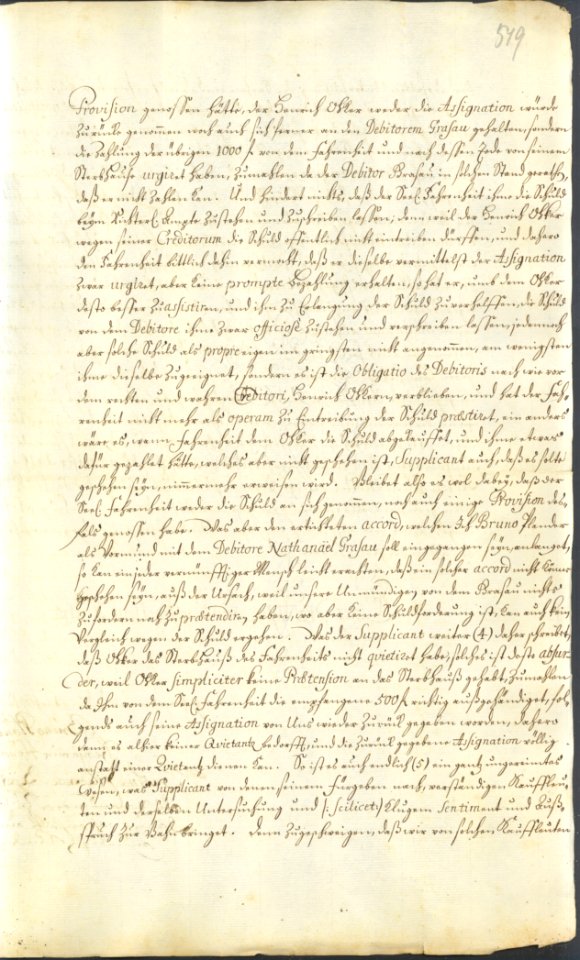 519
Provision genossen hätte, der Henrich Okker weder die Assignation würde
zurücke genommen noch auch sich ferner an den Debitorem Grasau gehalten, sondern
die Zahlung der übrigen 1000 fl von dem Fahrenheit und nach dessen Tode von seinem
Sterbhause urgiret haben, zumahlen da der Debitor Grasau in solchen Stand gerathen,
daß er nicht zahlen kan. Und hindert nichts, daß der Seel. Fahrenheit ihme die Schuld
beym Richterl. Ampte zustehen und zuschreiben lassen, denn weil der Henrich Okker
wegen seiner Creditorum die Schuld offentlich nicht eintreiben dürffen, und dahero
den Fahrenheit bittlich dahin vermocht, daß er dieselbe vermittelst der Assignation
zwar urgiret, aber keine prompte bezahlung erhalten, so hat er, umb dem Okker
desto besser zu assistiren, und ihm zu Erlangung der Schuld zu verhelffen, die Schuld
von dem Debitore ihme zwar officiosè zustehen und verschreiben lassen, jedennoch
aber solche Schuld als propre eigen im gringsten nicht angenommen, am wenigsten
ihme dieselbe zugeeignet, sondern es ist die Obligatio des Debitoris nach wie vor
dem rechten und wahren Creditori, Henrich Okkern, verblieben, und hat der Fah-
renheit nicht mehr als operam zu Eintreibung der Schuld præstiret, ein anders
wäre es, wann Fahrenheit dem Okker die Schuld abgekauffet, und ihme etwas
dafür gezahlet hätte, welches aber nicht geschehen ist, Supplicant auch, daß es solte
geschehen seyn, nimmermehr erweisen wird. Bleibet also es wol dabey, daß der
Seel. Fahrenheit weder die Schuld an sich genommen, noch auch einige Provision des-
fals genossen habe. Was aber den ertichteten accord, welchen Bruno
als Vormund mit dem Debitore Nathanäel Grasau soll eingegangen seyn, anlanget,
so kan ein jeder vernünfftiger Mensch leicht erachten, daß ein solcher accord nicht könne
geschehen seyn, auß der Ursach, weil unsere Unmündige, von dem Grasau nichts
zu fordern noch zu prætendiren haben, wo aber keine Schuldforderung ist, kan auch kein
Vergleich wegen der Schuld ergehen. Was der Supplicant weiter (4) daher schreibet,
daß Okker das Sterbhauß des Fahrenheits nicht quietiret habe, solches ist desto absur-
der, weil Okker simpliciter keine Prætension an das Sterbhauß gehabt, zumahlen
da Ihm von dem Seel. Fahrenheit die empfangene 500 fl richtig außgehändiget, fol-
gends auch seine Assignation von Uns wieder zurück gegeben worden, dahero
denn es alhier keiner Qvietantz bedorfft, und die zurück gegebene Assignation völlig
anstatt einer Qvietantz dienen kan. So ist es auch endlich (5) ein gantz ungereimtes
Wesen, was Supplicant von denen seinem Fürgeben nach, verständigen Kauffleu-
ten und derselben Untersuchung und /: scilicet:/ klugem Sentiment und Auß-
spruch zur Bahn bringet. Denn zugeschweigen, daß wir von solchen Kauffleuten